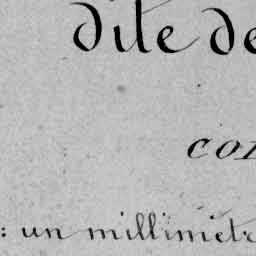 dite de
co
: un millimètr